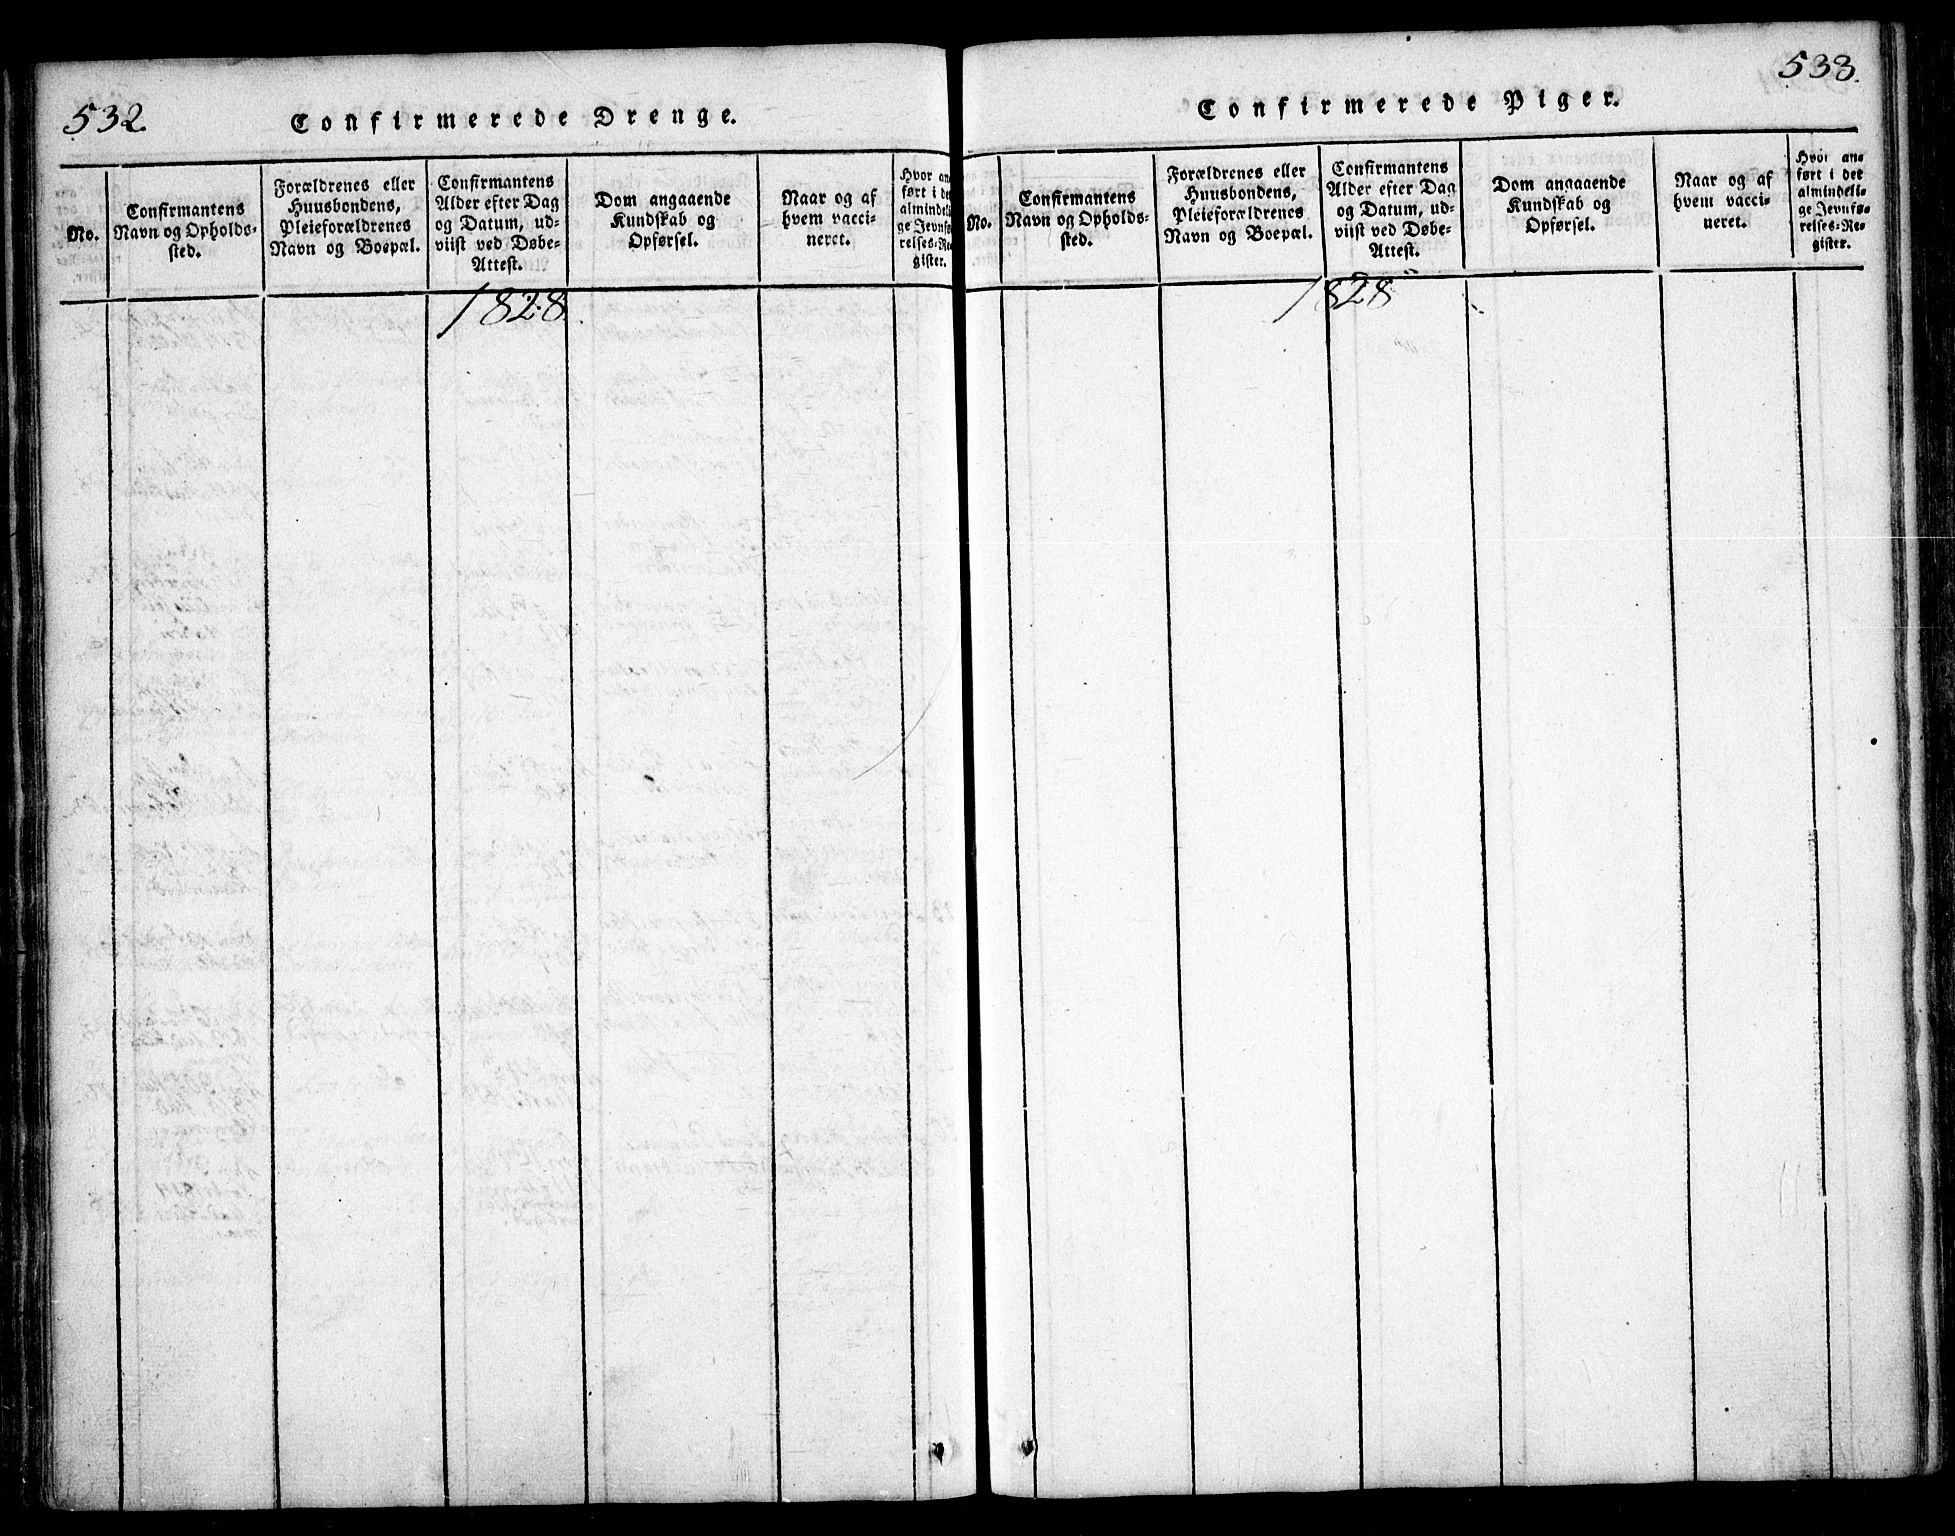 532.
Confirmerede Drenge.
No.
Confirmantens
Navn og Opholds-
sted.
Forældrenes eller
Huusbondens,
Pleieforældrenes
Navn og Boepæl.
Confirmantens
Alder efter Dag
og Datum, ud-
viist ved Døbe-
Attest.
Dom angaaende
Kundskab og
Opførsel.
Naar og af
hvem vacci-
neret.
Hvor an-
ført i det
almindeli-
ge Jevnfø-
relses-Re-
gister.
1828.
533.
Confirmerede Piger.
No.
Confirmantens
Navn og Opholds-
sted.
Forældrenes eller
Huusbondens,
Pleieforældrenes
Navn og Boepæl.
Confirmantens
Alder efter Dag
og Datum, ud-
viist ved Døbe-
Attest.
Dom angaaende
Kundskab og
Opførsel.
Naar og af
hvem vacci-
neret.
Hvor an-
ført i det
almindeli-
ge Jevnfø-
relses-Re-
gister.
1828